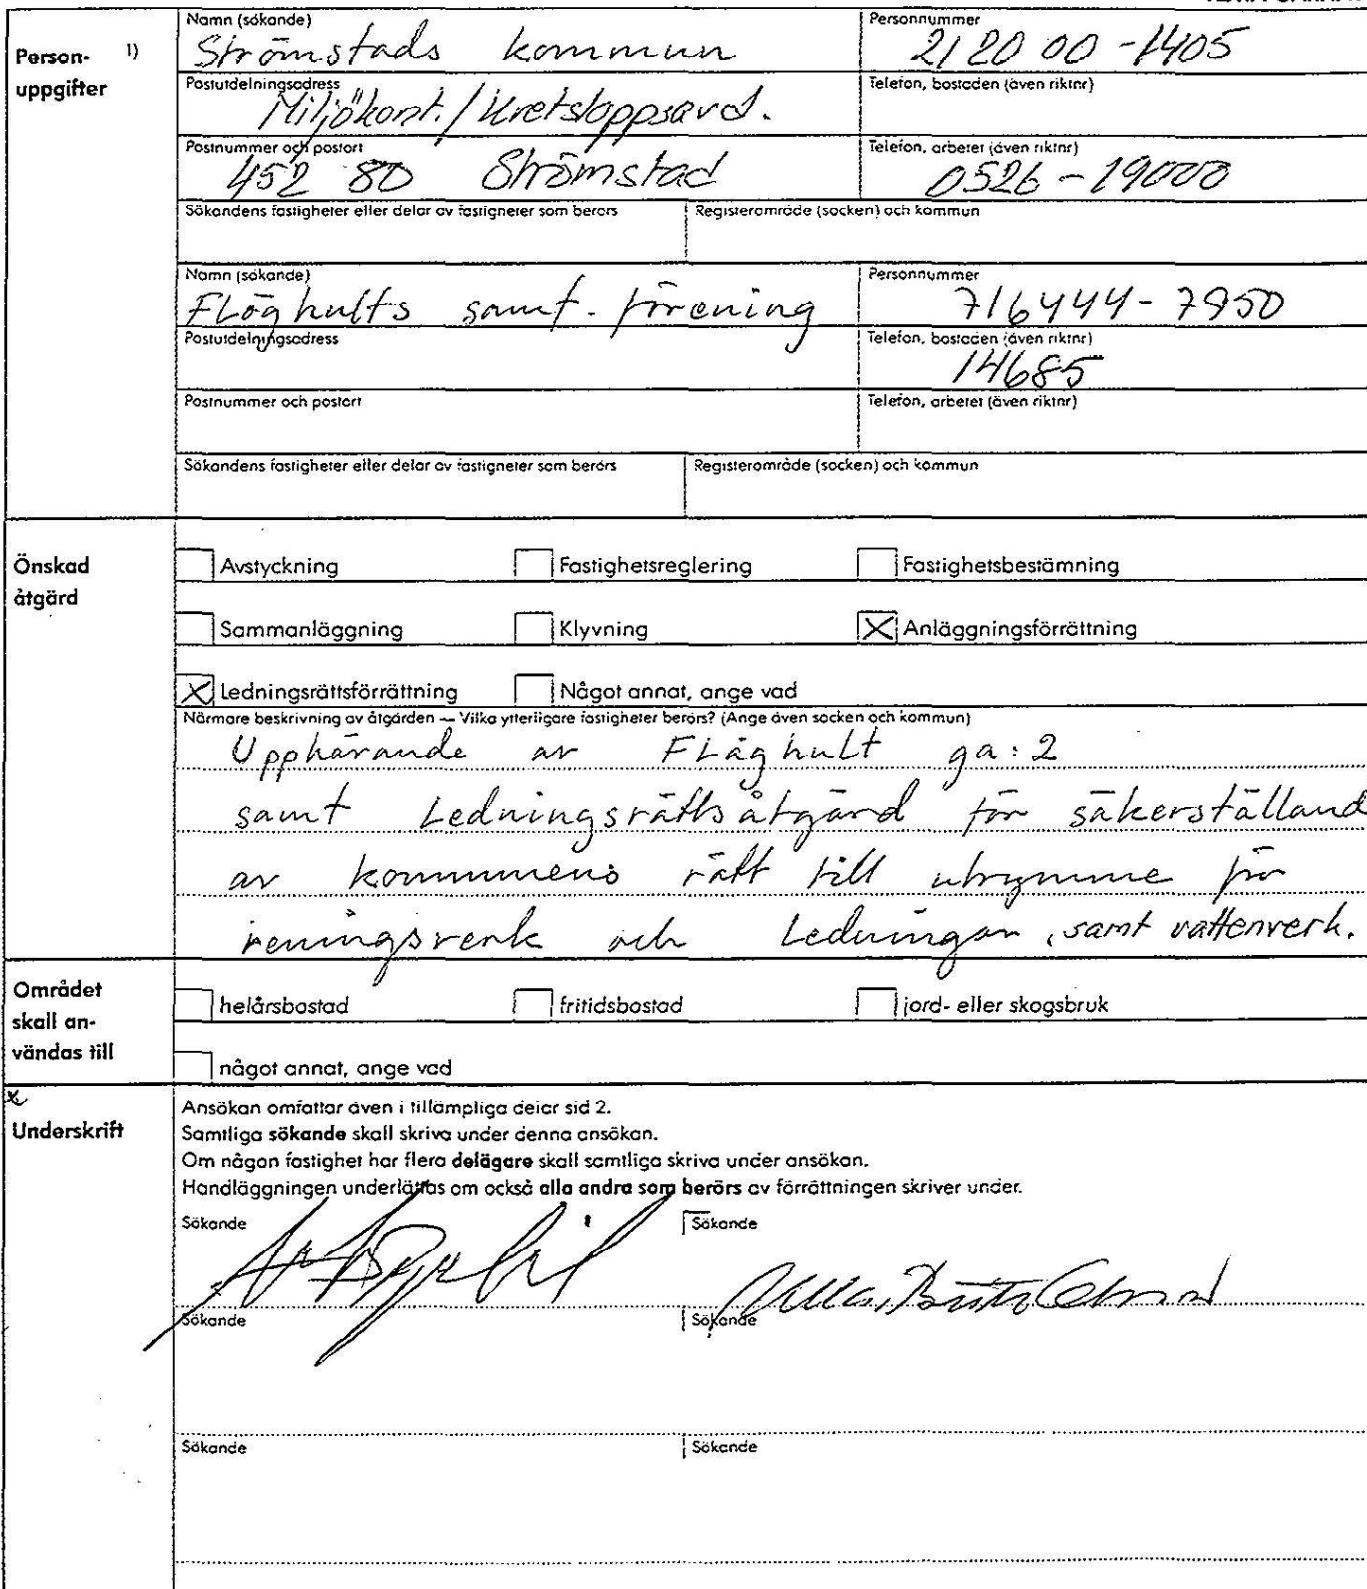 Person- 1)
uppgifter
Namn (sökande)
Strömstads kommun
Personnummer
212000-1405
Postutdelningsadress
Miljökont./Kretsloppsavd.
Telefon, bostaden (även riktnr)
Postnummer och postort
452 80 Strömstad
Telefon, arbetet (även riktnr)
0526-19000
Sökandens fastigheter eller delar av fastigheter som berörs
Registerområde (socken) och kommun
Namn (sökande)
Flöghults samf. förening
Personnummer
716444-7950
Postutdelningsadress
Telefon, bostaden (även riktnr)
14685
Postnummer och postort
Telefon, arbetet (även riktnr)
Sökandens fastigheter eller delar av fastigheter som berörs
Registerområde (socken) och kommun
Önskad
åtgärd
Avstyckning
Fastighetsreglering
Fastighetsbestämning
Sammanläggning
Klyvning
X Anläggningsförrättning
X Ledningsrättsförrättning
Något annat, ange vad
Närmare beskrivning av åtgärden — Vilka ytterligare fastigheter berörs? (Ange även socken och kommun)
Upphörande av Flåghult ga:2
samt Ledningsrättsåtgärd för säkerställand
av kommunens rätt till utrymme för
reningsverk och Ledningar, samt vattenverk.
Området
skall an-
vändas till
helårsbostad
fritidsbostad
jord- eller skogsbruk
något annat, ange vad
x
Underskrift
Ansökan omfattar även i tillämpliga delar sid 2.
Samtliga sökande skall skriva under denna ansökan.
Om någon fastighet har flera delägare skall samtliga skriva under ansökan.
Handläggningen underlättas om också alla andra som berörs av förrättningen skriver under.
Sökande
Sökande
Sökande
Sökande
Sökande
Sökande